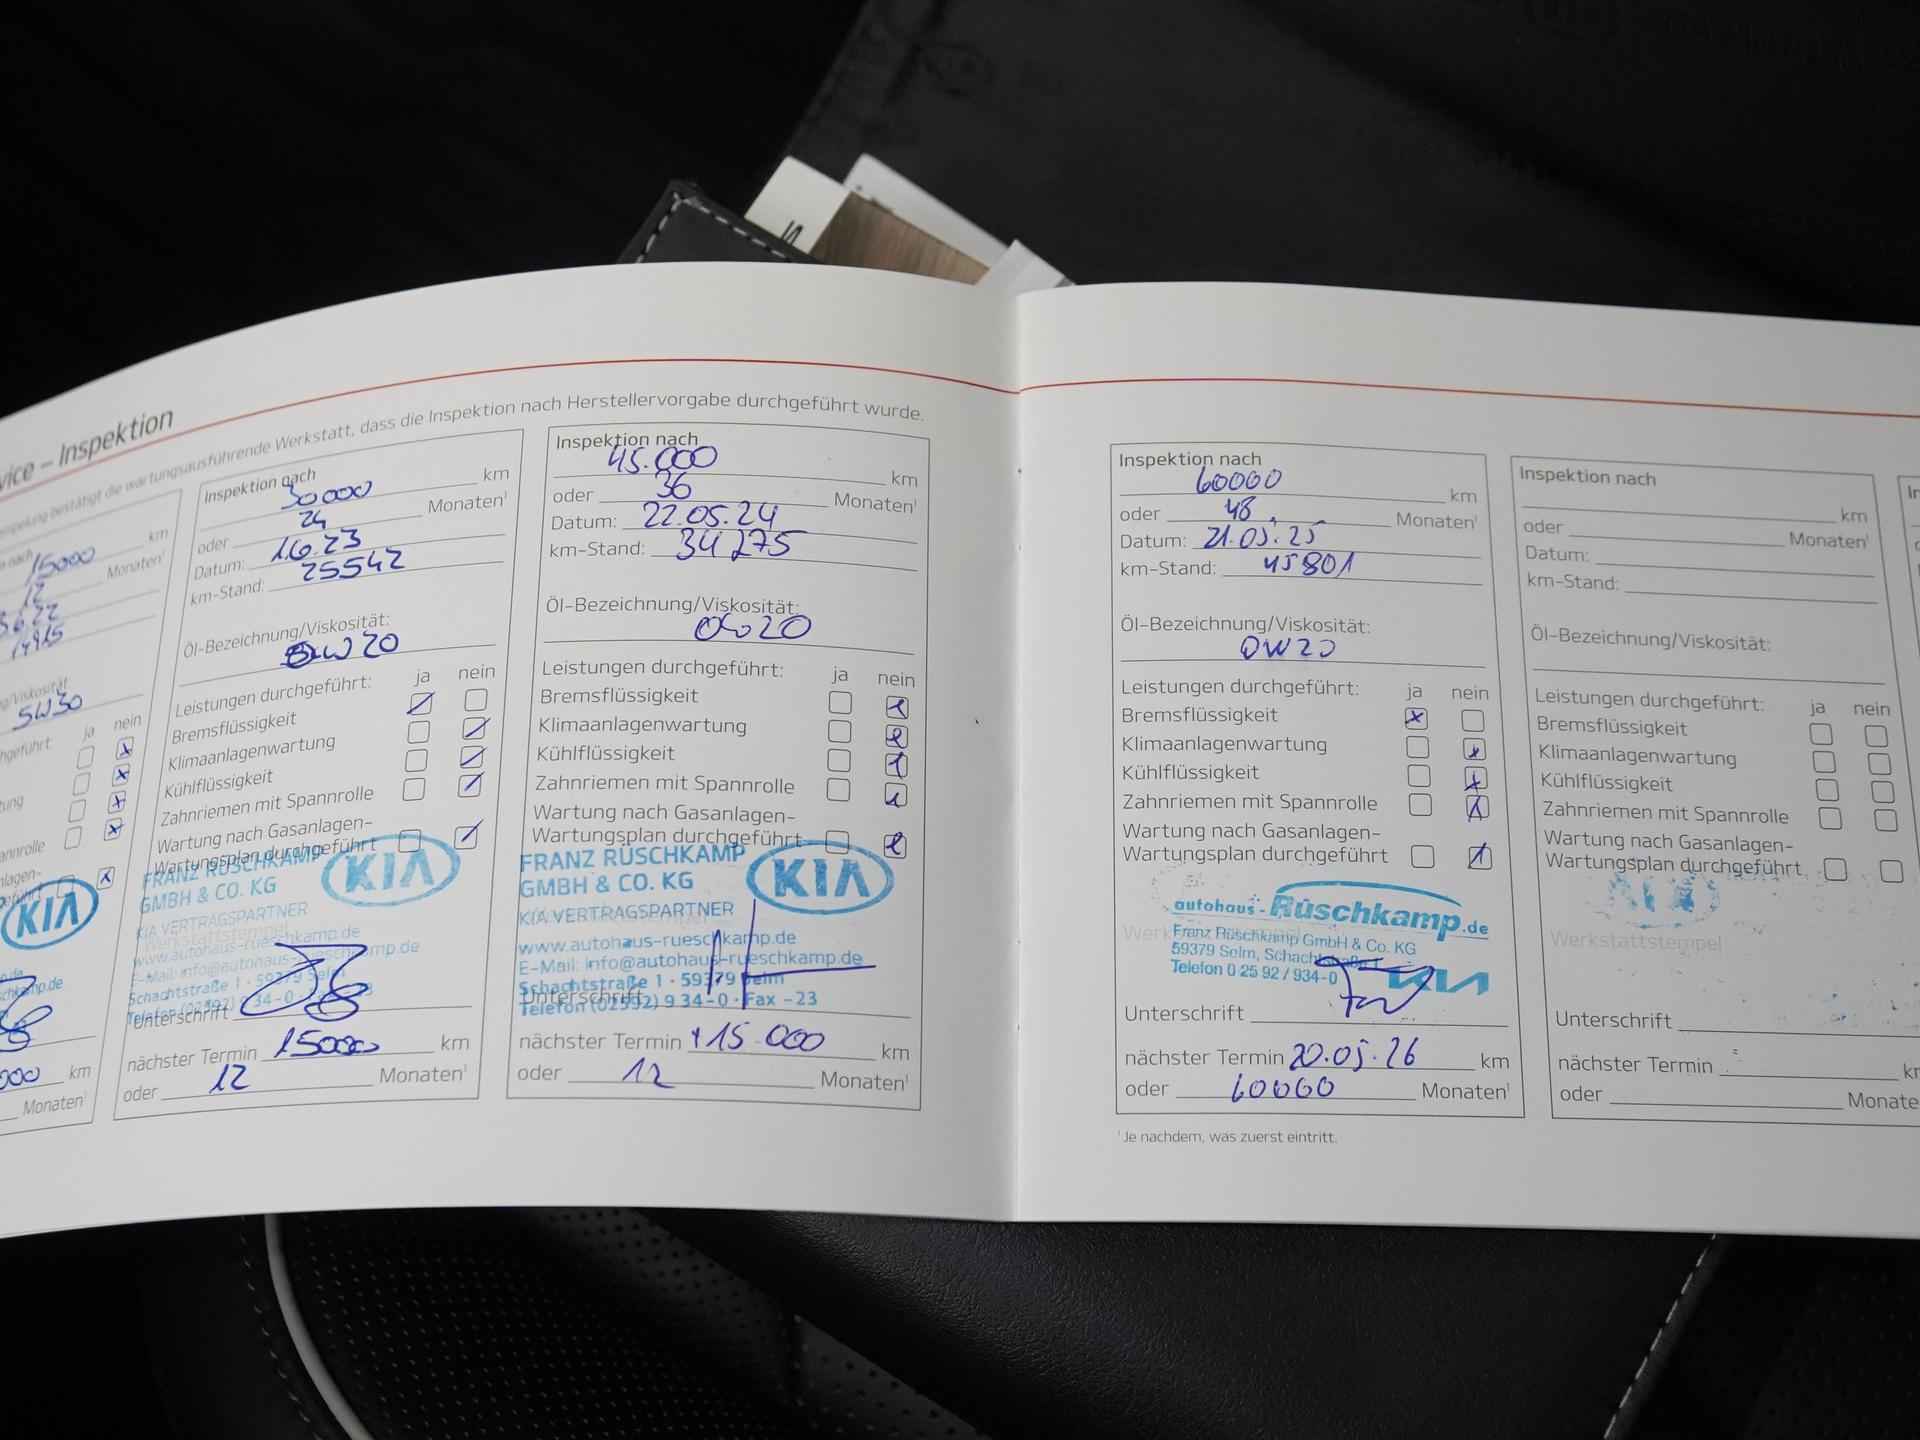 vice – Inspektion
bestätigt die wartungsausführende Werkstatt, dass die Inspektion nach Herstellervorgabe durchgeführt wurde.
nach
15000 km
12 Monaten¹
14915
5W30
ja nein
km
Monaten¹
Inspektion nach
30000 km
oder 24 Monaten¹
Datum: 1.6.23
km-Stand: 25542
Öl-Bezeichnung/Viskosität:
0W20
Leistungen durchgeführt: ja nein
Bremsflüssigkeit
Klimaanlagenwartung
Kühlflüssigkeit
Zahnriemen mit Spannrolle
Wartung nach Gasanlagen-
Wartungsplan durchgeführt
FRANZ RÜSCHKAMP
GMBH & CO. KG
KIA
KIA VERTRAGSPARTNER
www.autohaus-rueschkamp.de
E-Mail: info@autohaus-rueschkamp.de
Schachtstraße 1 · 59379 Selm
Unterschrift
nächster Termin 15000 km
oder 12 Monaten¹
Inspektion nach
45.000 km
oder 36 Monaten¹
Datum: 22.05.24
km-Stand: 34275
Öl-Bezeichnung/Viskosität:
0w20
Leistungen durchgeführt: ja nein
Bremsflüssigkeit
Klimaanlagenwartung
Kühlflüssigkeit
Zahnriemen mit Spannrolle
Wartung nach Gasanlagen-
Wartungsplan durchgeführt
FRANZ RÜSCHKAMP
GMBH & CO. KG
KIA
KIA VERTRAGSPARTNER
www.autohaus-rueschkamp.de
E-Mail: info@autohaus-rueschkamp.de
Schachtstraße 1 · 59379 Selm
Telefon (02592) 9 34-0 · Fax -23
Unterschrift
nächster Termin +15.000 km
oder 12 Monaten¹
Inspektion nach
60000 km
oder 48 Monaten¹
Datum: 21.05.25
km-Stand: 45801
Öl-Bezeichnung/Viskosität:
0W20
Leistungen durchgeführt: ja nein
Bremsflüssigkeit
Klimaanlagenwartung
Kühlflüssigkeit
Zahnriemen mit Spannrolle
Wartung nach Gasanlagen-
Wartungsplan durchgeführt
autohaus-Rüschkamp.de
Franz Rüschkamp GmbH & Co. KG
59379 Selm, Schachtstraße 1
Telefon 0 25 92 / 934-0
KIA
Unterschrift
nächster Termin 20.05.26 km
oder 60000 Monaten¹
¹Je nachdem, was zuerst eintritt.
Inspektion nach
km
oder Monaten¹
Datum:
km-Stand:
Öl-Bezeichnung/Viskosität:
Leistungen durchgeführt: ja nein
Bremsflüssigkeit
Klimaanlagenwartung
Kühlflüssigkeit
Zahnriemen mit Spannrolle
Wartung nach Gasanlagen-
Wartungsplan durchgeführt
Werkstattstempel
Unterschrift
nächster Termin
oder Monate